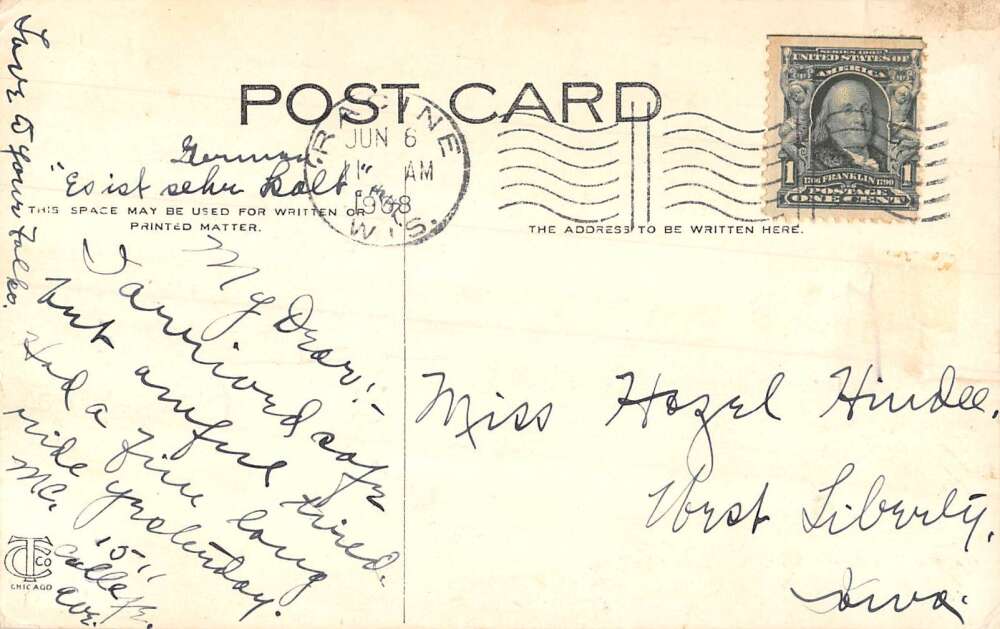 POST CARD
RACINE
JUN 6
11 AM
1908
WIS.
SERIES 1902
UNITED STATES OF
AMERICA
1706 FRANKLIN 1790
1 POSTAGE 1
ONE CENT
German
"Es ist sehr Kalt"
THIS SPACE MAY BE USED FOR WRITTEN OR
PRINTED MATTER.
THE ADDRESS TO BE WRITTEN HERE.
My Dear:-
I arrived safe
but awful tired.
Had a fine long
ride yesterday.
Mc.
1511
College
ave.
Love to your folks.
Miss Hazel Hindee.
West Liberty,
Iowa.
TC CO
CHICAGO